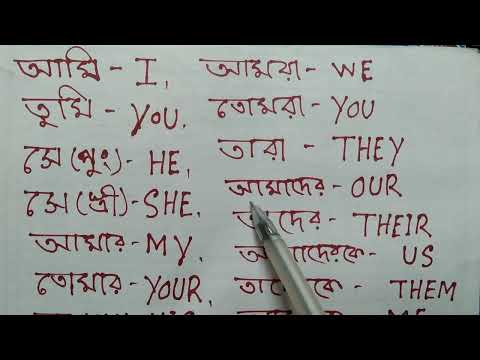 আমি - I,
তুমি - YOU,
সে (পুং) - HE,
সে (স্ত্রী) - SHE,
আমার - MY,
তোমার - YOUR,
আমরা - WE
তোমরা - YOU
তারা - THEY
আমাদের - OUR
তাদের - THEIR
আমাদেরকে - US
তাদেরকে - THEM
ME